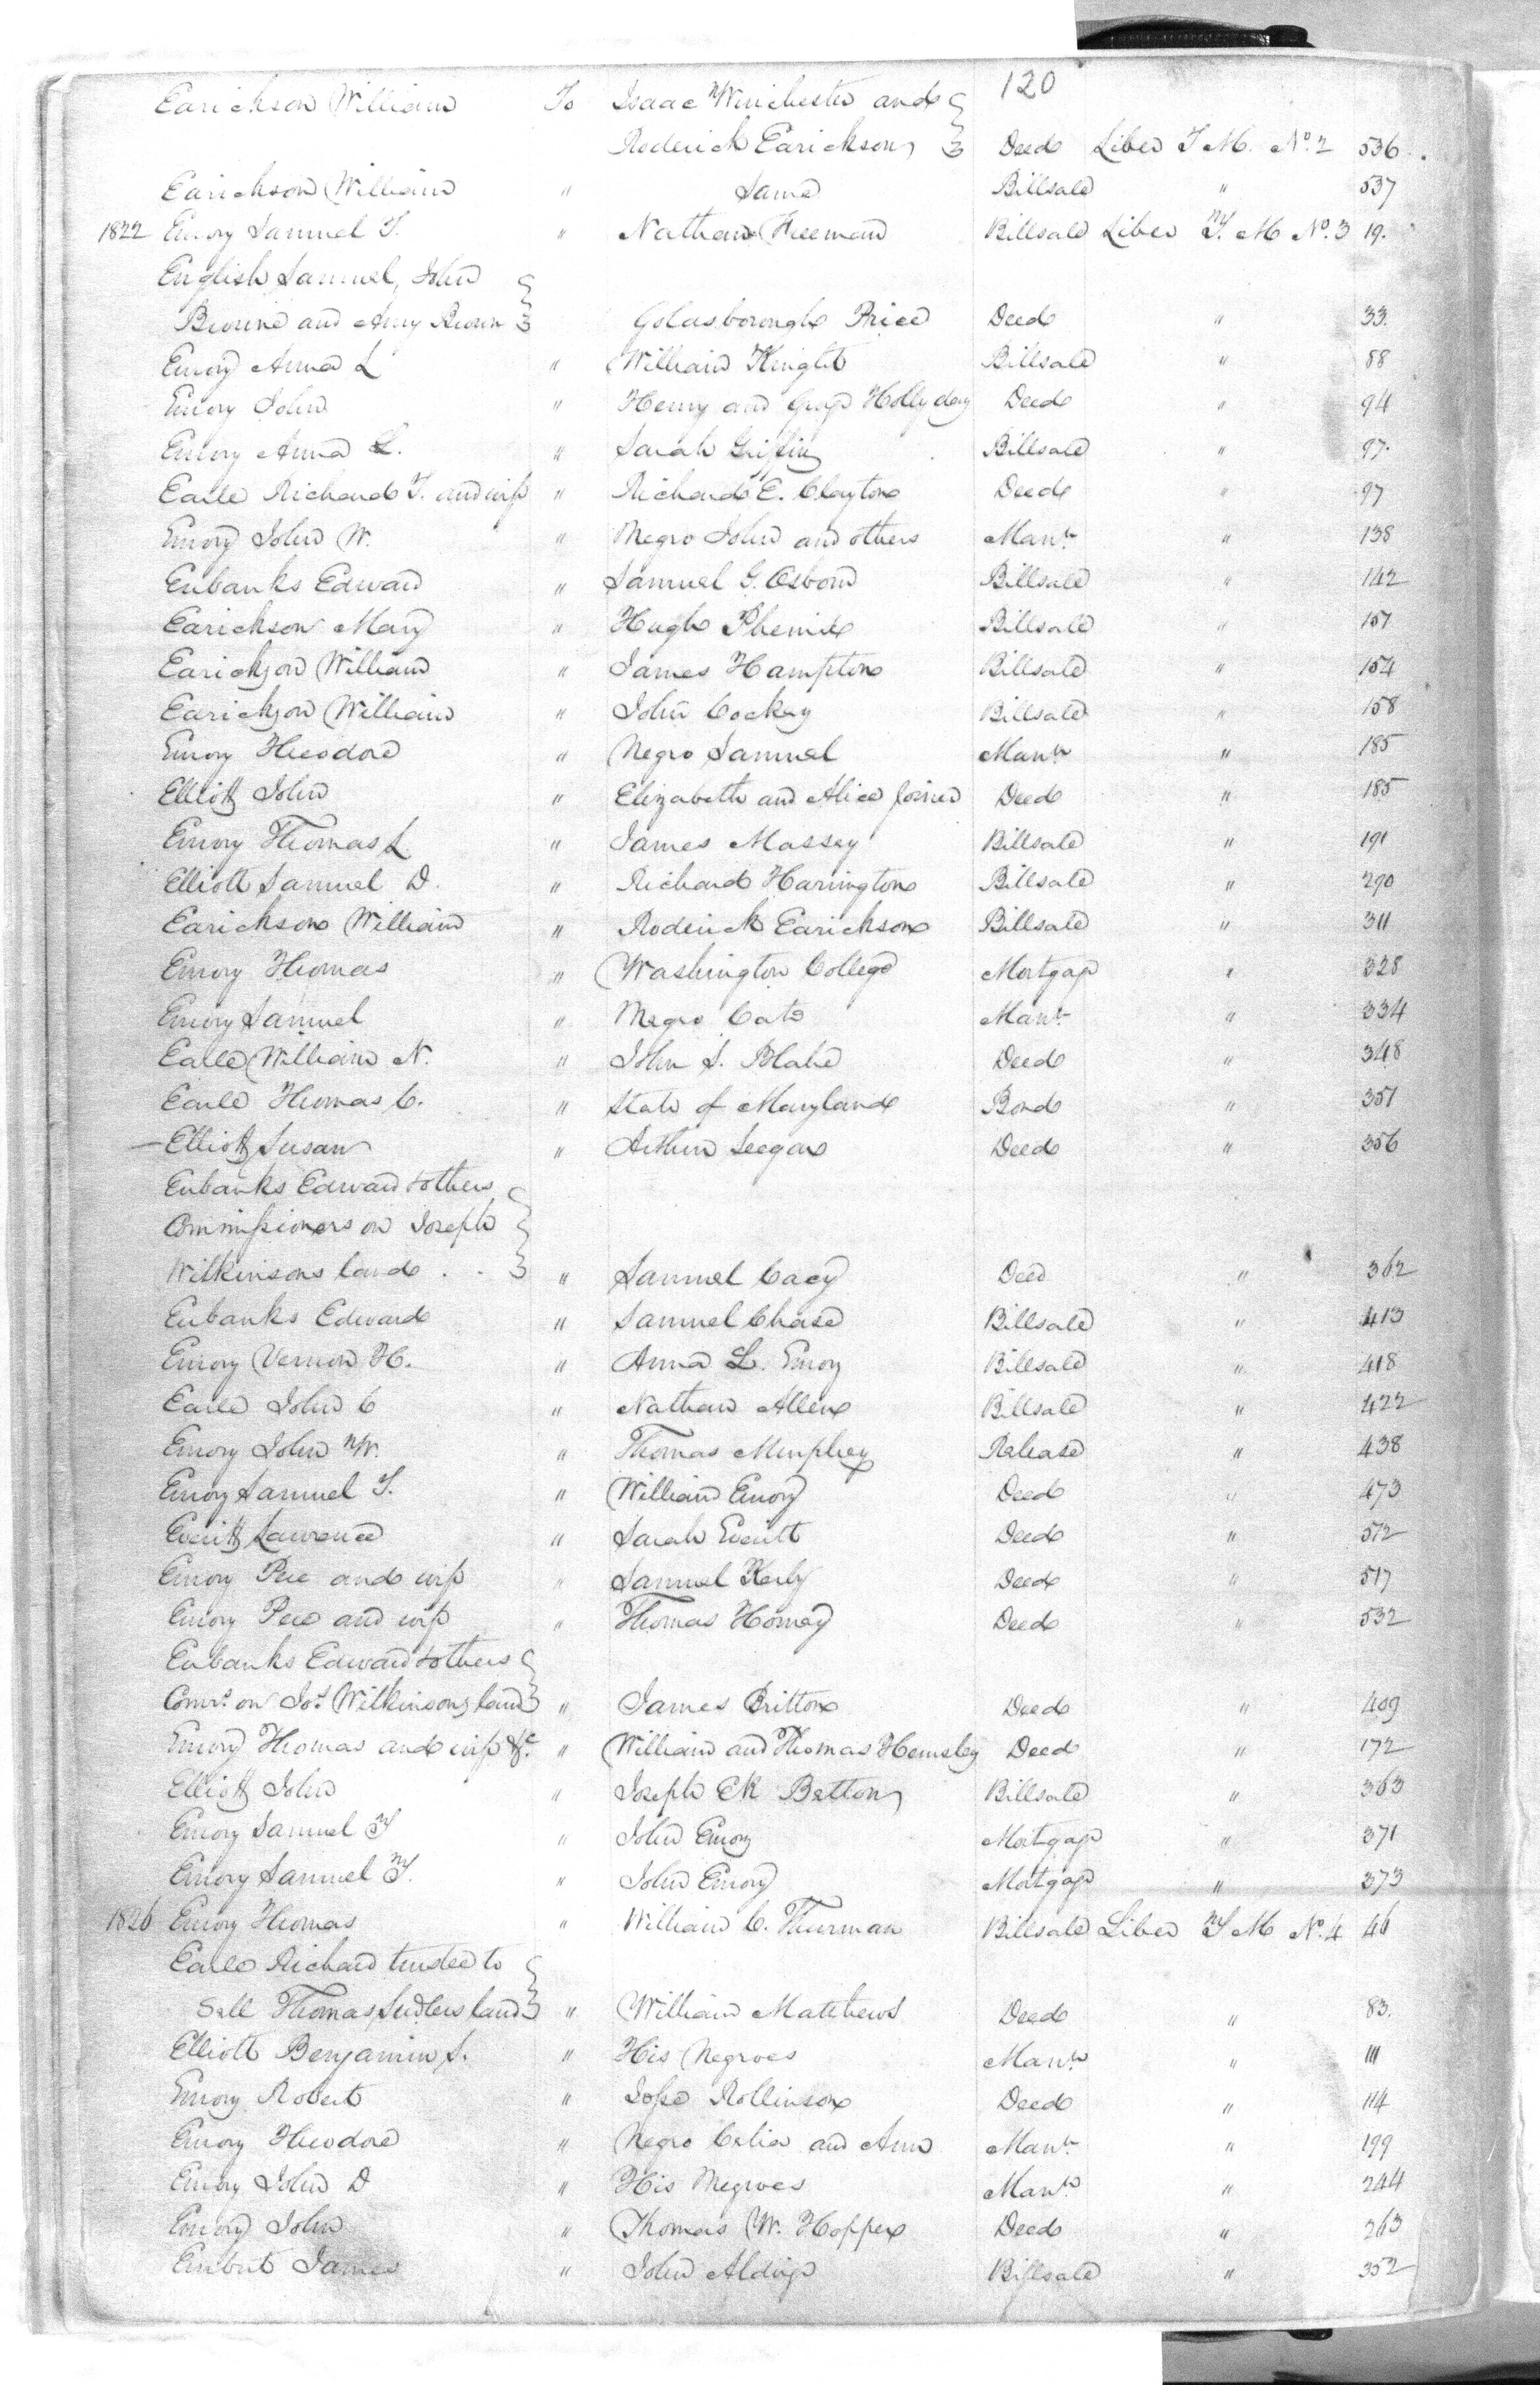 120
Earickson William To Isaac Winchester and
Roderick Earickson Deed Liber T M. No. 2 536
Earickson William " Same Billsale " 537
1822 Emory Samuel T. " Nathan Freeman Billsale Liber T. M No. 3 19.
English Samuel, John
Browne and Amy Brown Goldsborough Price Deed " 33.
Emory Anna L " William Knight Billsale " 88
Emory John " Henry and Geoge Hollyday Deed " 94
Emory Anna L. " Sarah Griffin Billsale " 97.
Earle Richard T. and wife " Richard E. Clayton Deed " 97
Emory John W. " Negro John and others Mann. " 138
Eubanks Edward " Samuel G. Osborn Billsale " 142
Earickson Mary " Hugh Phenix Billsale " 151
Earickson William " James Hampton Billsale " 154
Earickson William " John Cockey Billsale " 158
Emory Theodore " Negro Samuel Mann " 185
Elliott John " Elizabeth and Alice Joiner Deed " 185
Emory Thomas L. " James Massey Billsale " 191
Elliott Samuel D. " Richard Harrington Billsale " 290
Earickson William " Roderick Earickson Billsale " 311
Emory Thomas " Washington College Mortgage " 328
Emory Samuel " Negro Cato Mann. " 334
Earle William N. " John S. Blake Deed " 348
Earle Thomas C. " State of Maryland Bond " 351
Elliott Susan " Arthur Seegar Deed " 356
Eubanks Edward & others
Commissioners on Joseph
Wilkinsons land . . " Samuel Cacy Deed " 362
Eubanks Edward " Samuel Chase Billsale " 413
Emory Vernon H. " Anna L. Emory Billsale " 418
Earle John C " Nathan Allen Billsale " 422
Emory John W. " Thomas Murphey Release " 438
Emory Samuel T. " William Emory Deed " 473
Everitt Lawrence " Sarah Everitt Deed " 512
Emory Pere and wife " Samuel Kerby Deed " 517
Emory Pere and wife " Thomas Horney Deed " 532
Eubanks Edward & others
Comrs. on Jos. Wilkinsons land " James Britton Deed " 409
Emory Thomas and wife &c. " William and Thomas Hemsley Deed " 172
Elliott John " Joseph ER Betton Billsale " 363
Emory Samuel T " John Emory Mortgage " 371
Emory Samuel T. " John Emory Mortgage " 373
1826 Emory Thomas " William C. Thurman Billsale Liber T M No. 4 46
Earle Richard trustee to
Sell Thomas Sudlers land " William Matthews Deed " 83.
Elliott Benjamin S. " His Negroes Mann. " 111
Emory Robert " Rollinson Deed " 114
Emory Theodore " Negro Celia and Ann Mann. " 199
Emory John D " His Negroes Mann. " 244
Emory John " Thomas W. Hopper Deed " 263
James " John Billsale " 352